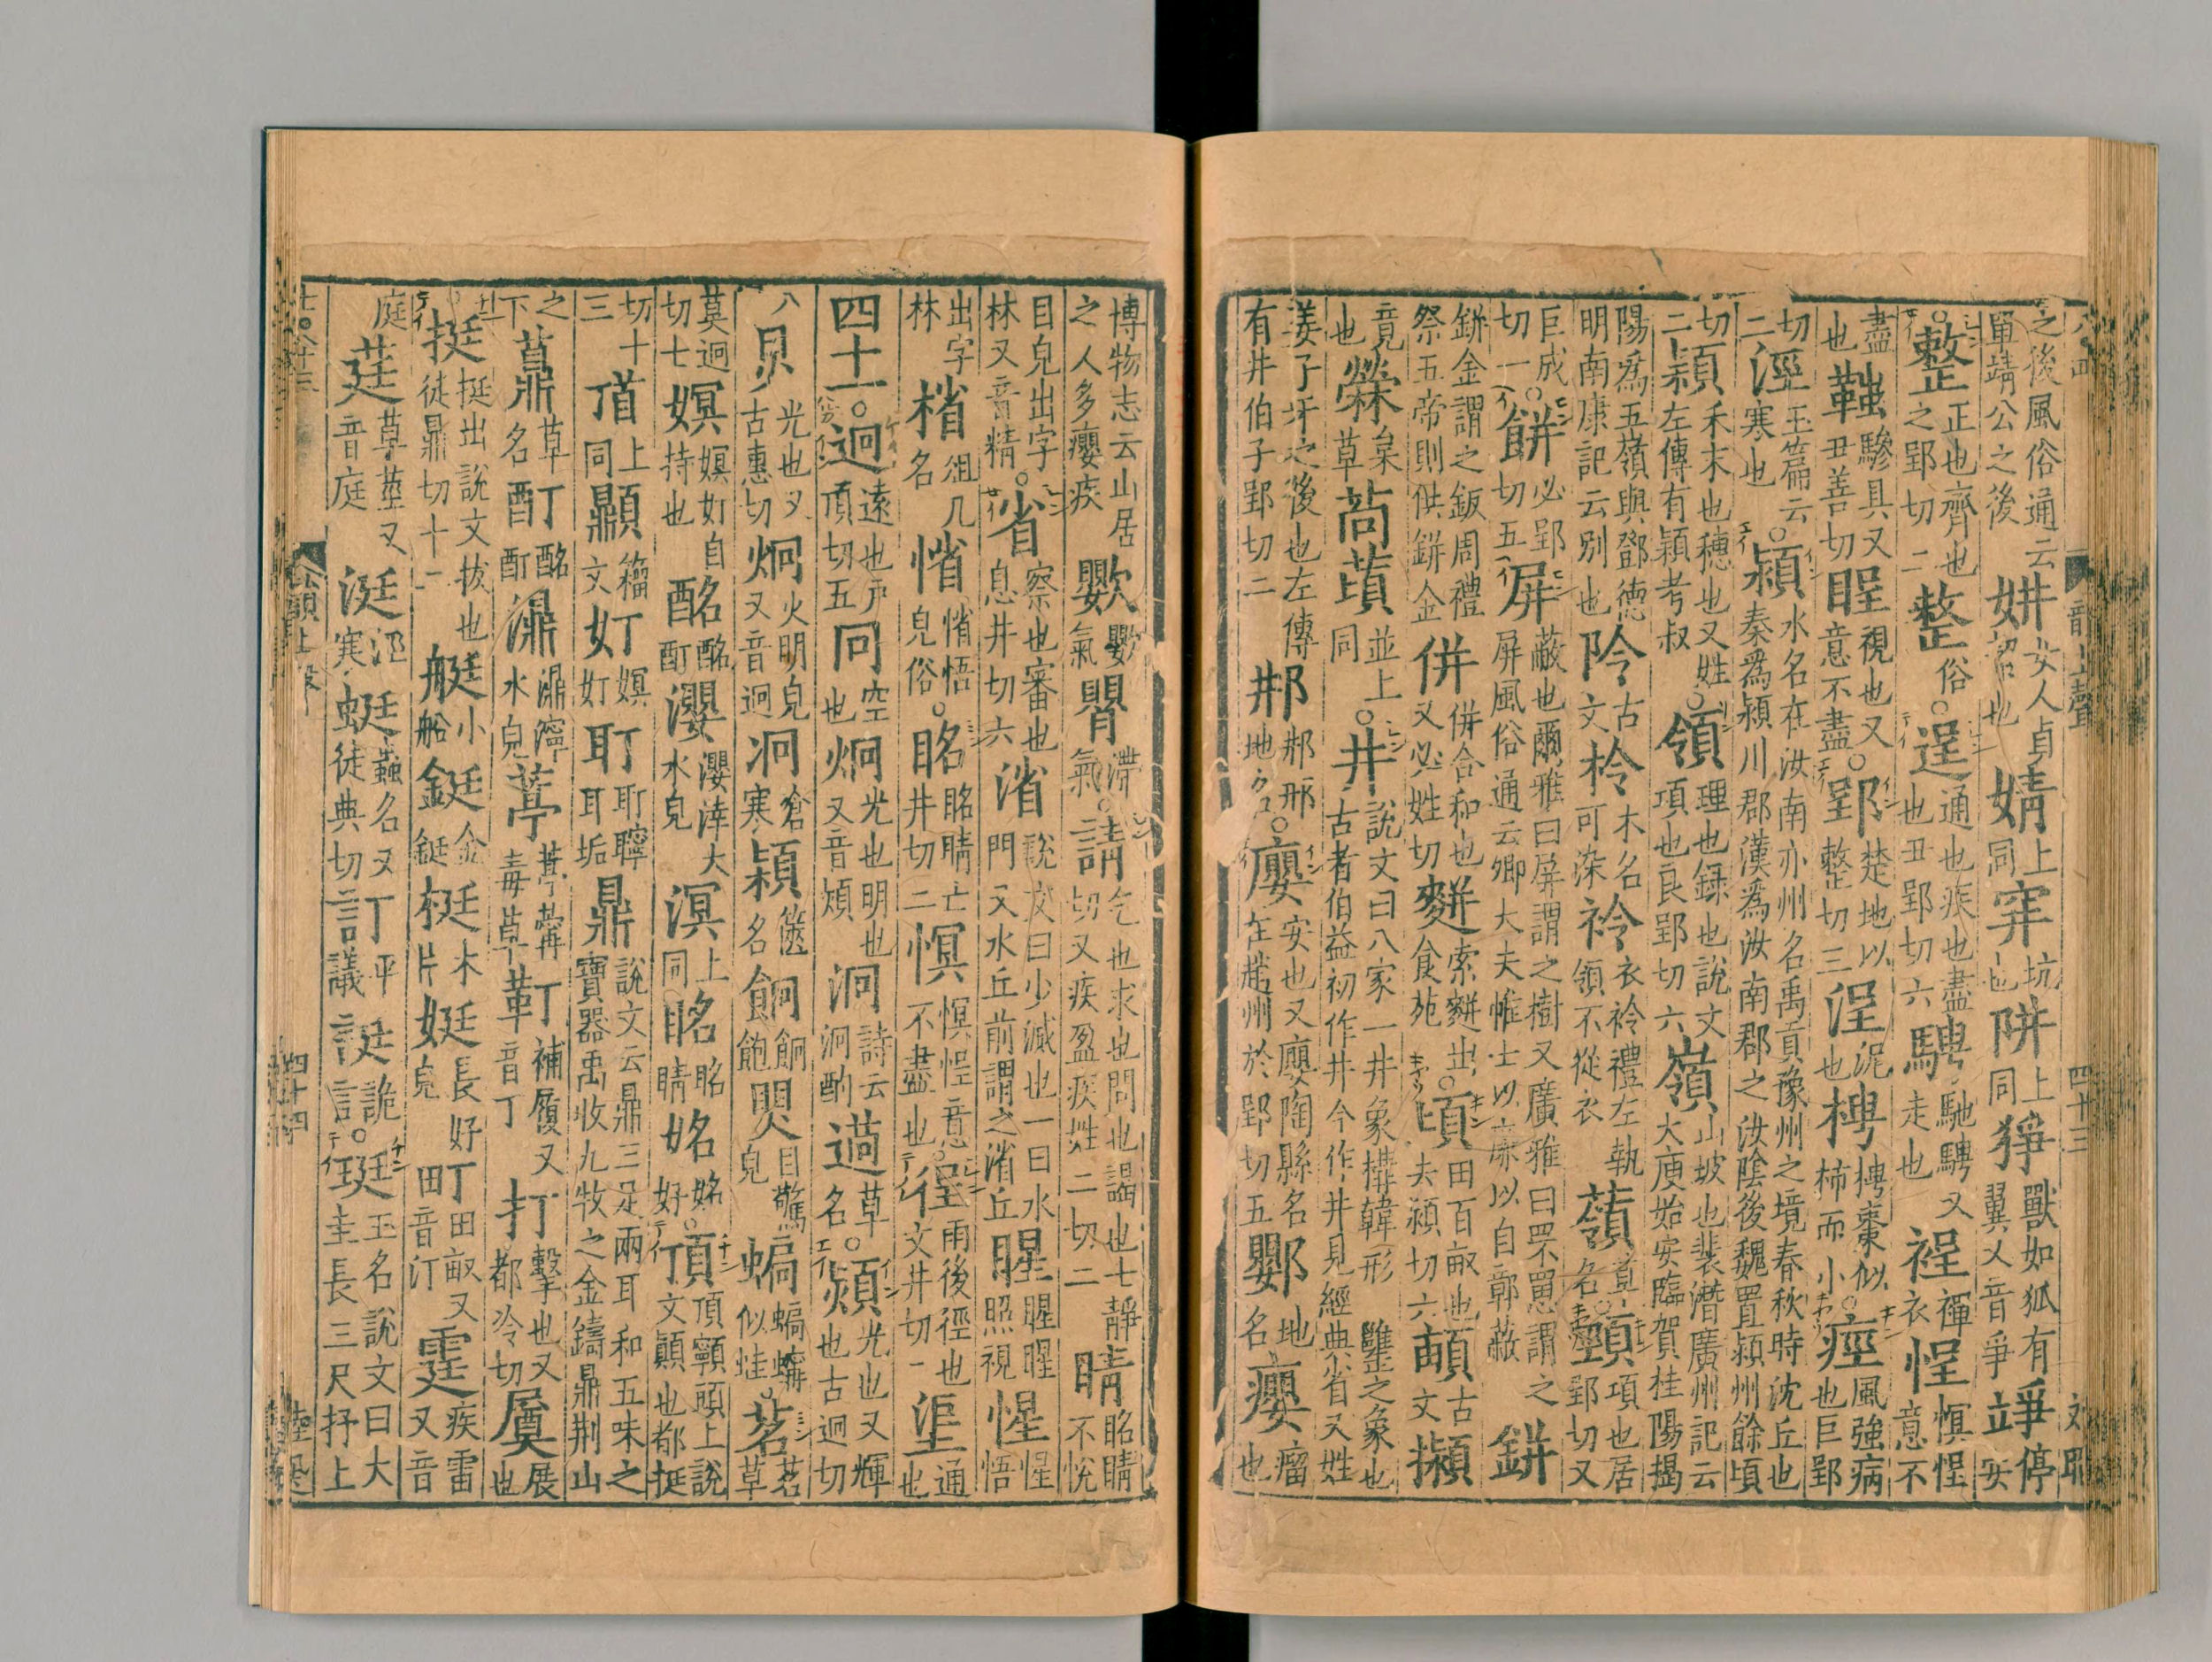 之後風俗通云單靖公之後妌女人貞絜也婧上同穽坑也阱上同猙獸如狐有翼又音爭竫停安
整正也齊也之郢切二𢿫俗逞通也疾也盡也丑郢切六騁馳騁又走也裎襌衣悜愼悜意不
盡也䩶驂具又丑善切睈視也又意不盡郢楚地以整切三浧泥也梬梬棗似柿而小痙風強病也巨郢
切二涇玉篇云寒也潁水名在汝南亦州名禹貢豫州之境春秋時沈丘也秦爲潁川郡漢爲汝南郡之汝陰後魏置潁州餘頃
切二穎禾末也穗也又姓左傳有穎考叔領理也録也說文項也良郢切六嶺山坡也裴潛廣州記云大庾始安臨賀桂陽揭
陽爲五嶺與鄧德明南康記云別也阾古文柃木名可染袊衣袊禮左執領不從衣蘏草名頸項也居郢切又
巨成切一餅必郢切五屏蔽也爾雅曰屏謂之樹又廣雅曰罘罳謂之屏風俗通云卿大夫帷士以廉以自鄣蔽鉼
鉼金謂之鈑周禮祭五帝則供鉼金併併合和也又必姓切䴵索䴵出食苑頃田百畝也去潁切六䔛古文㩩
竟也檾枲草苘䔛並上同井說文曰八家一井象構韓形𦉥之象也古者伯益初作井今作井見經典省又姓
姜子牙之後也左傳有井伯子郢切二邢邢地名廮安也又廮陶縣名在趙州於郢切五鄋地名癭瘤也
博物志云山居之人多癭疾㿘氣䁝滯氣請乞也求也問也謁也七靜切又疾盈疾姓二切二睛眳睛不悅
目皃出字林又音精省察也審也息井切六渻說文曰少減也一曰水門又水丘前謂之渻丘睲睲睲照視惺惺悟
出字林㮐俎几名㥠㥠悟皃俗眳眳睛亡井切二慏慏悜意不盡也徎雨後徑也丈井切一㘸通也
四十一迥遠也戶頂切五冋空也炯光也明也又音熲泂詩云泂酌䓳草名熲光也又輝也古迥切
八炅光也又古惠切烱火明皃又音迥冷滄寒熲篋名餉餉飽煚目驚皃蝙蝙蠐似蛙茗茗草
莫迥切七嫇嫇奵自持也酩酩酊㵾㵾涬大水皃溟上同眳眳睛姳姳好頂頂𩕳頭上說文顚也都挺
切十三䪴上同顯籀文奵嫇奵耵耵聹耳垢鼎說文云鼎三足兩耳和五味之寶器禹收九牧之金鑄鼎荆山
之下薡草名酊酩酊濎濎濘水皃葶葶藶毒草靪補履又音丁打擊也又都冷切㡳展也
挺挺出說文拔也徒鼎切十一艇小船鋌金鋌梃木片娗長好皃町田畝又田音汀霆疾雷又音
庭莛草莖又音庭涏涏寒蜓蟲名又徒典切訂平議誔詭言珽玉名說文曰大圭長三尺抒上